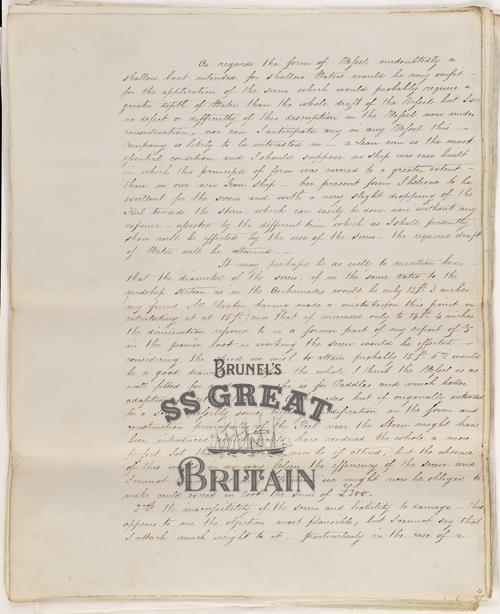 As regards the form of Vessel undoubtedly a
shallow boat intended for shallow Waters would be very unfit
for the application of the screw which would probably require a
greater depth of Water than the whole draft of the Vessel but I see
no defect or difficulty of this description in the Vessel now under
consideration, nor can I anticipate any in any Vessel this
Company is likely to be interested in — a clean run is the most
essential condition, and I should suppose no ship was ever built
in which this principle of form was carried to a greater extent
than in our new Iron ship — her present form I believe to be
excellent for the screw and with a very slight dropping of the
Keel towards the stern, which can easily be done now without any
expence — affected by the different trim which as I shall presently
show will be effected by the use of the screw — the required draft
of Water will be attained. —
It may perhaps be as well to mention here
that the diameter of the screw, if in the same ratio to the
midship section as in the Archimedes would be only 12 ft 3 inches
my friend Mr Claxton having made a mistake upon this point in
calculating it at 15 ft and that if increased only to 14 ft 4 inches
the diminution referred to in a former part of my report of 1/5
in the power lost in working the screw would be effected —
considering the speed we wish to attain probably 15 ft would
be a good the whole I think the Vessel is as
well fitted for is for Paddles and much better
adapted but if originally intended
to a some modification in the form and
construction the Keel near the Stern might have
been introduced have rendered the whole a more
perfect Job now be if altered, but the absence
of this in no way the efficiency of the screw and
I cannot we might now be obliged to
make could exceed in Cost the sum of £300.
2ndly the inaccessibility of the screw and liability to damage — this
appears to me the objection most plausible, but I cannot say that
I attach much weight to it — particularly in the case of a
BRUNEL'S
SS GREAT
BRITAIN